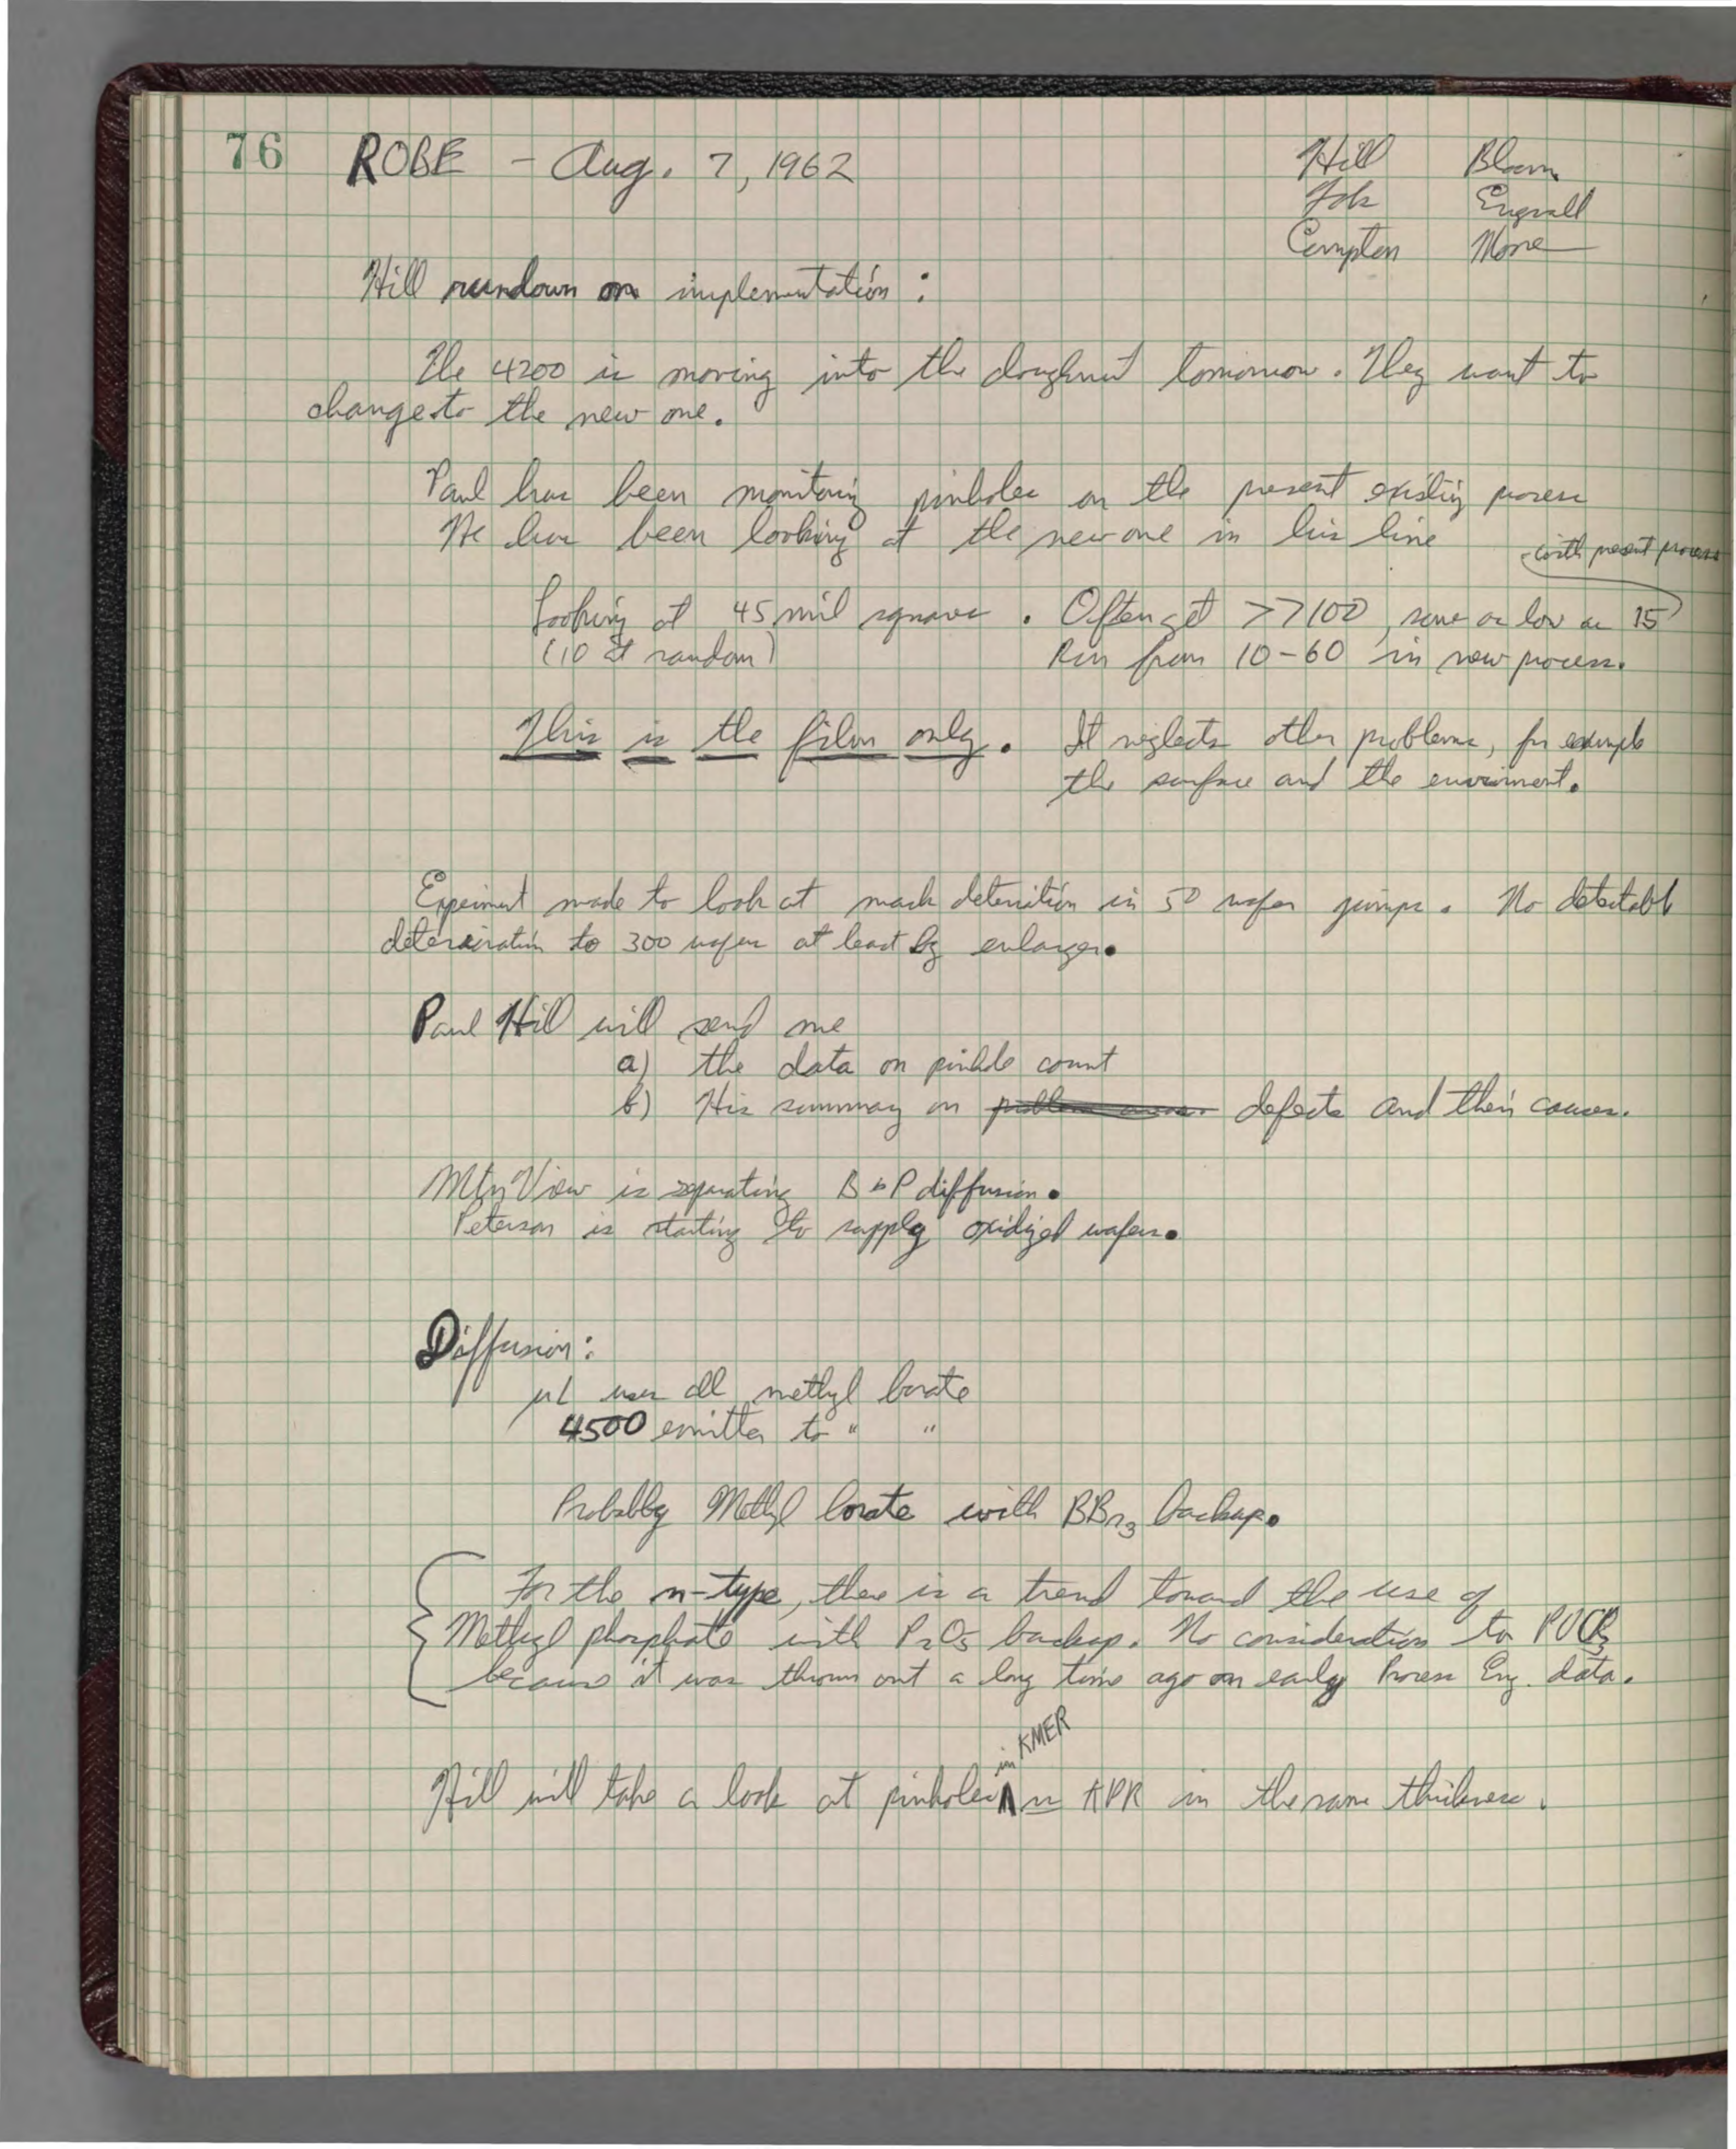 76 ROBE - Aug. 7, 1962
Hill Bloom
Engvall
Compton Moore
Hill rundown on implementation :
The 4200 is moving into the doughnut tomorrow. They want to
change to the new one.
Paul has been monitoring pinholes on the present existing process
He has been looking at the new one in his line
with present process
Looking at 45 mil squares. Often get >>100, some as low as 15
(10 at random) Run from 10-60 in new process.
This is the film only. It neglects other problems, for example
the surface and the enviroment.
Experiment made to look at mask in 50 wafer jumps. No detectable
to 300 wafers at least by enlarger.
Paul Hill will send me
a) the data on pinhole count
b) His summary on problem areas defects and their causes.
Mtn View is separating B + P diffusion.
Peterson is starting to supply oxidized wafers.
Diffusion:
µL uses all methyl borate
4500 emitter to " "
Probably Methyl borate with BBr3 backup.
For the n-type, there is a trend toward the use of
Methyl phosphate with P2O5 backup. No consideration to POCl3
because it was thrown out a long time ago on early Process Eng. data.
in KMER
Hill will take a look at pinholes ∧ vs KPR in the same thickness.